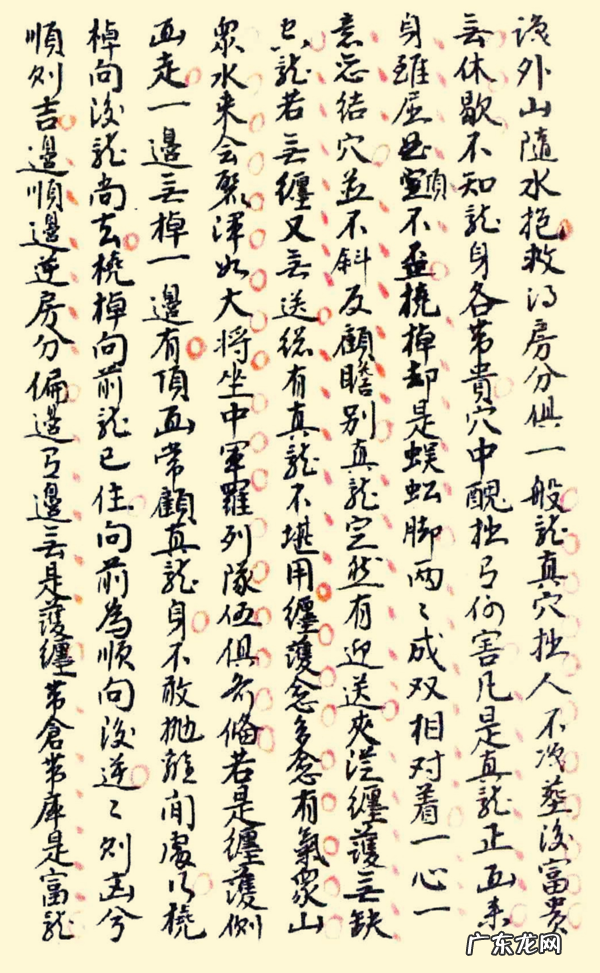 護外山隨水抱救得房分俱一般龍真穴拙人不次葬後富貴
無休歇不知龍身各帶貴穴中醜拙有何害凡是真龍正面來
身雖屈曲頭不歪橈棹却是蜈蚣脚两〻成双相对着一心一
意忘结穴並不斜反顧瞻别真龍定然有迎送夾從纏護無缺
龍若無纏又無送縱有真龍不堪用纏護愈多愈有氣眾山
眾水来会聚渾如大将坐中軍羅列隊伍俱齐備若是纏護側
面走一邊無棹一邊有頂面常顧真龍身不敢抛離闲處行橈
棹向後龍尚去橈棹向前龍已住向前為順向後逆〻则凶兮
順则吉邊順邊逆房分偏邊有邊無是護纏带倉带庫是富龍
广东龙网